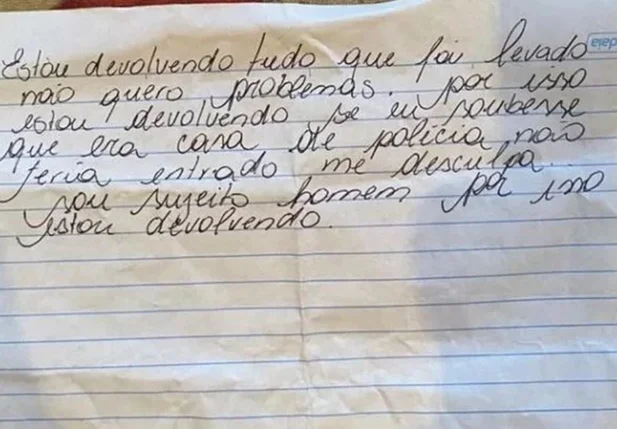 Estou devolvendo tudo que foi levado
não quero problemas. por isso
estou devolvendo se eu soubesse
que era casa de policia, não
teria entrado me desculpa.
sou sujeito homem por isso
estou devolvendo.